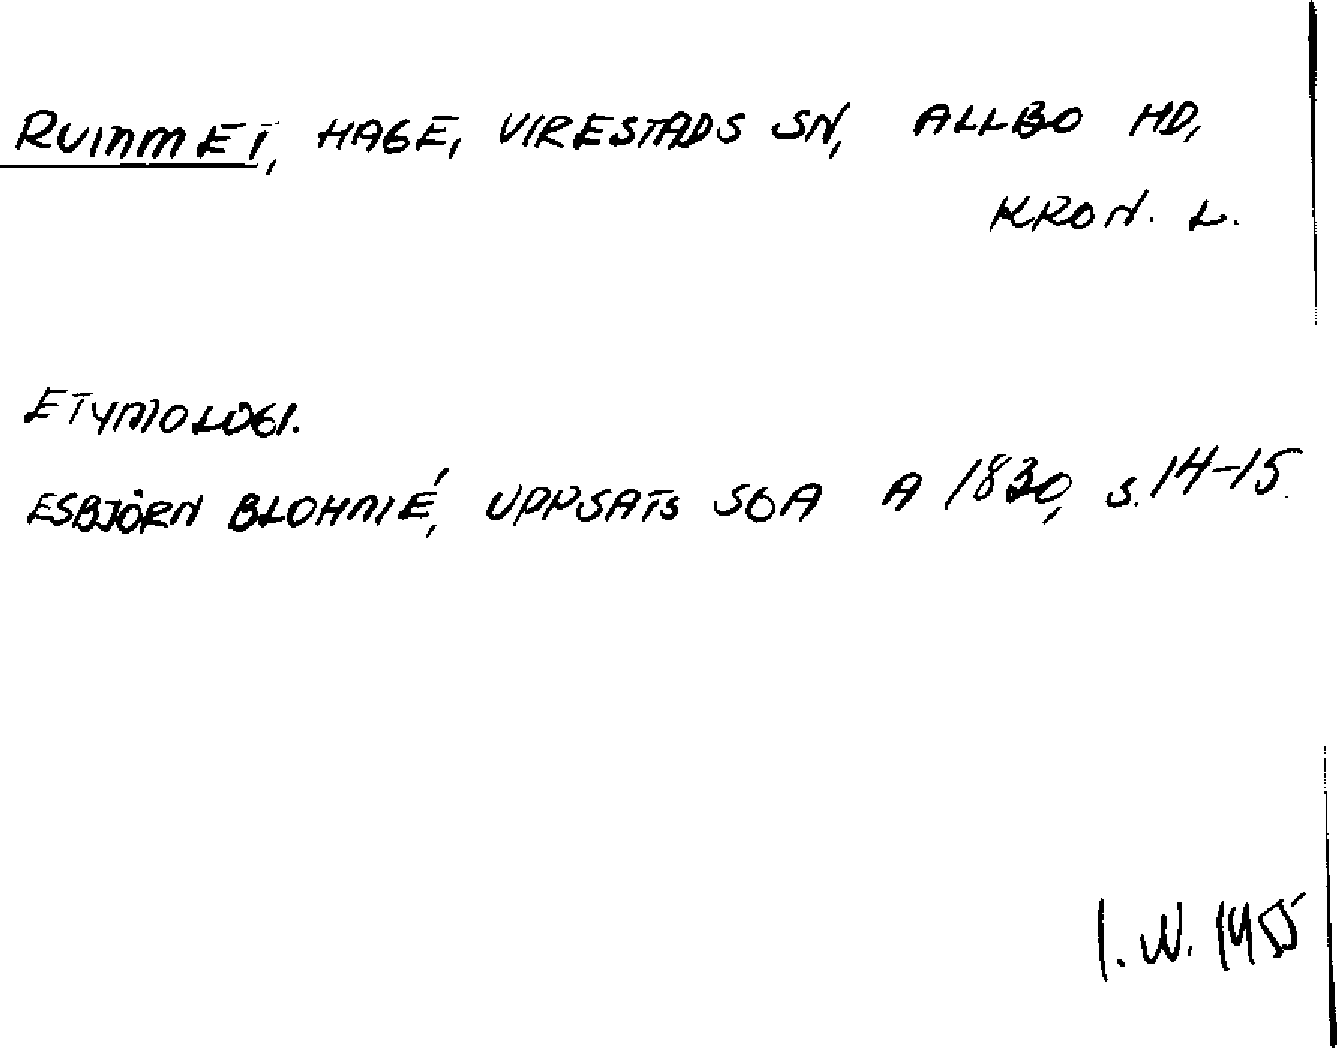 RUINMET, HAGE, VIRESTADS SN, ALLBO HD,
KRON. L.
ETYMOLOGI.
ESBJÖRN BLOHMÉ, UPPSATS SOA A 1830, S. 14-15.
I. W. 1955